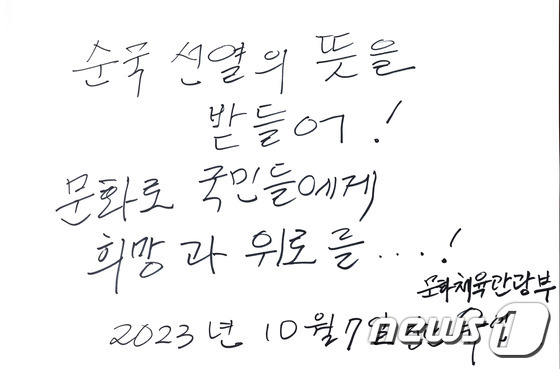 순국 선열의 뜻을
받들어!
문화로 국민들에게
희망과 위로를....!
문화체육관광부
2023년 10월 7일
news1